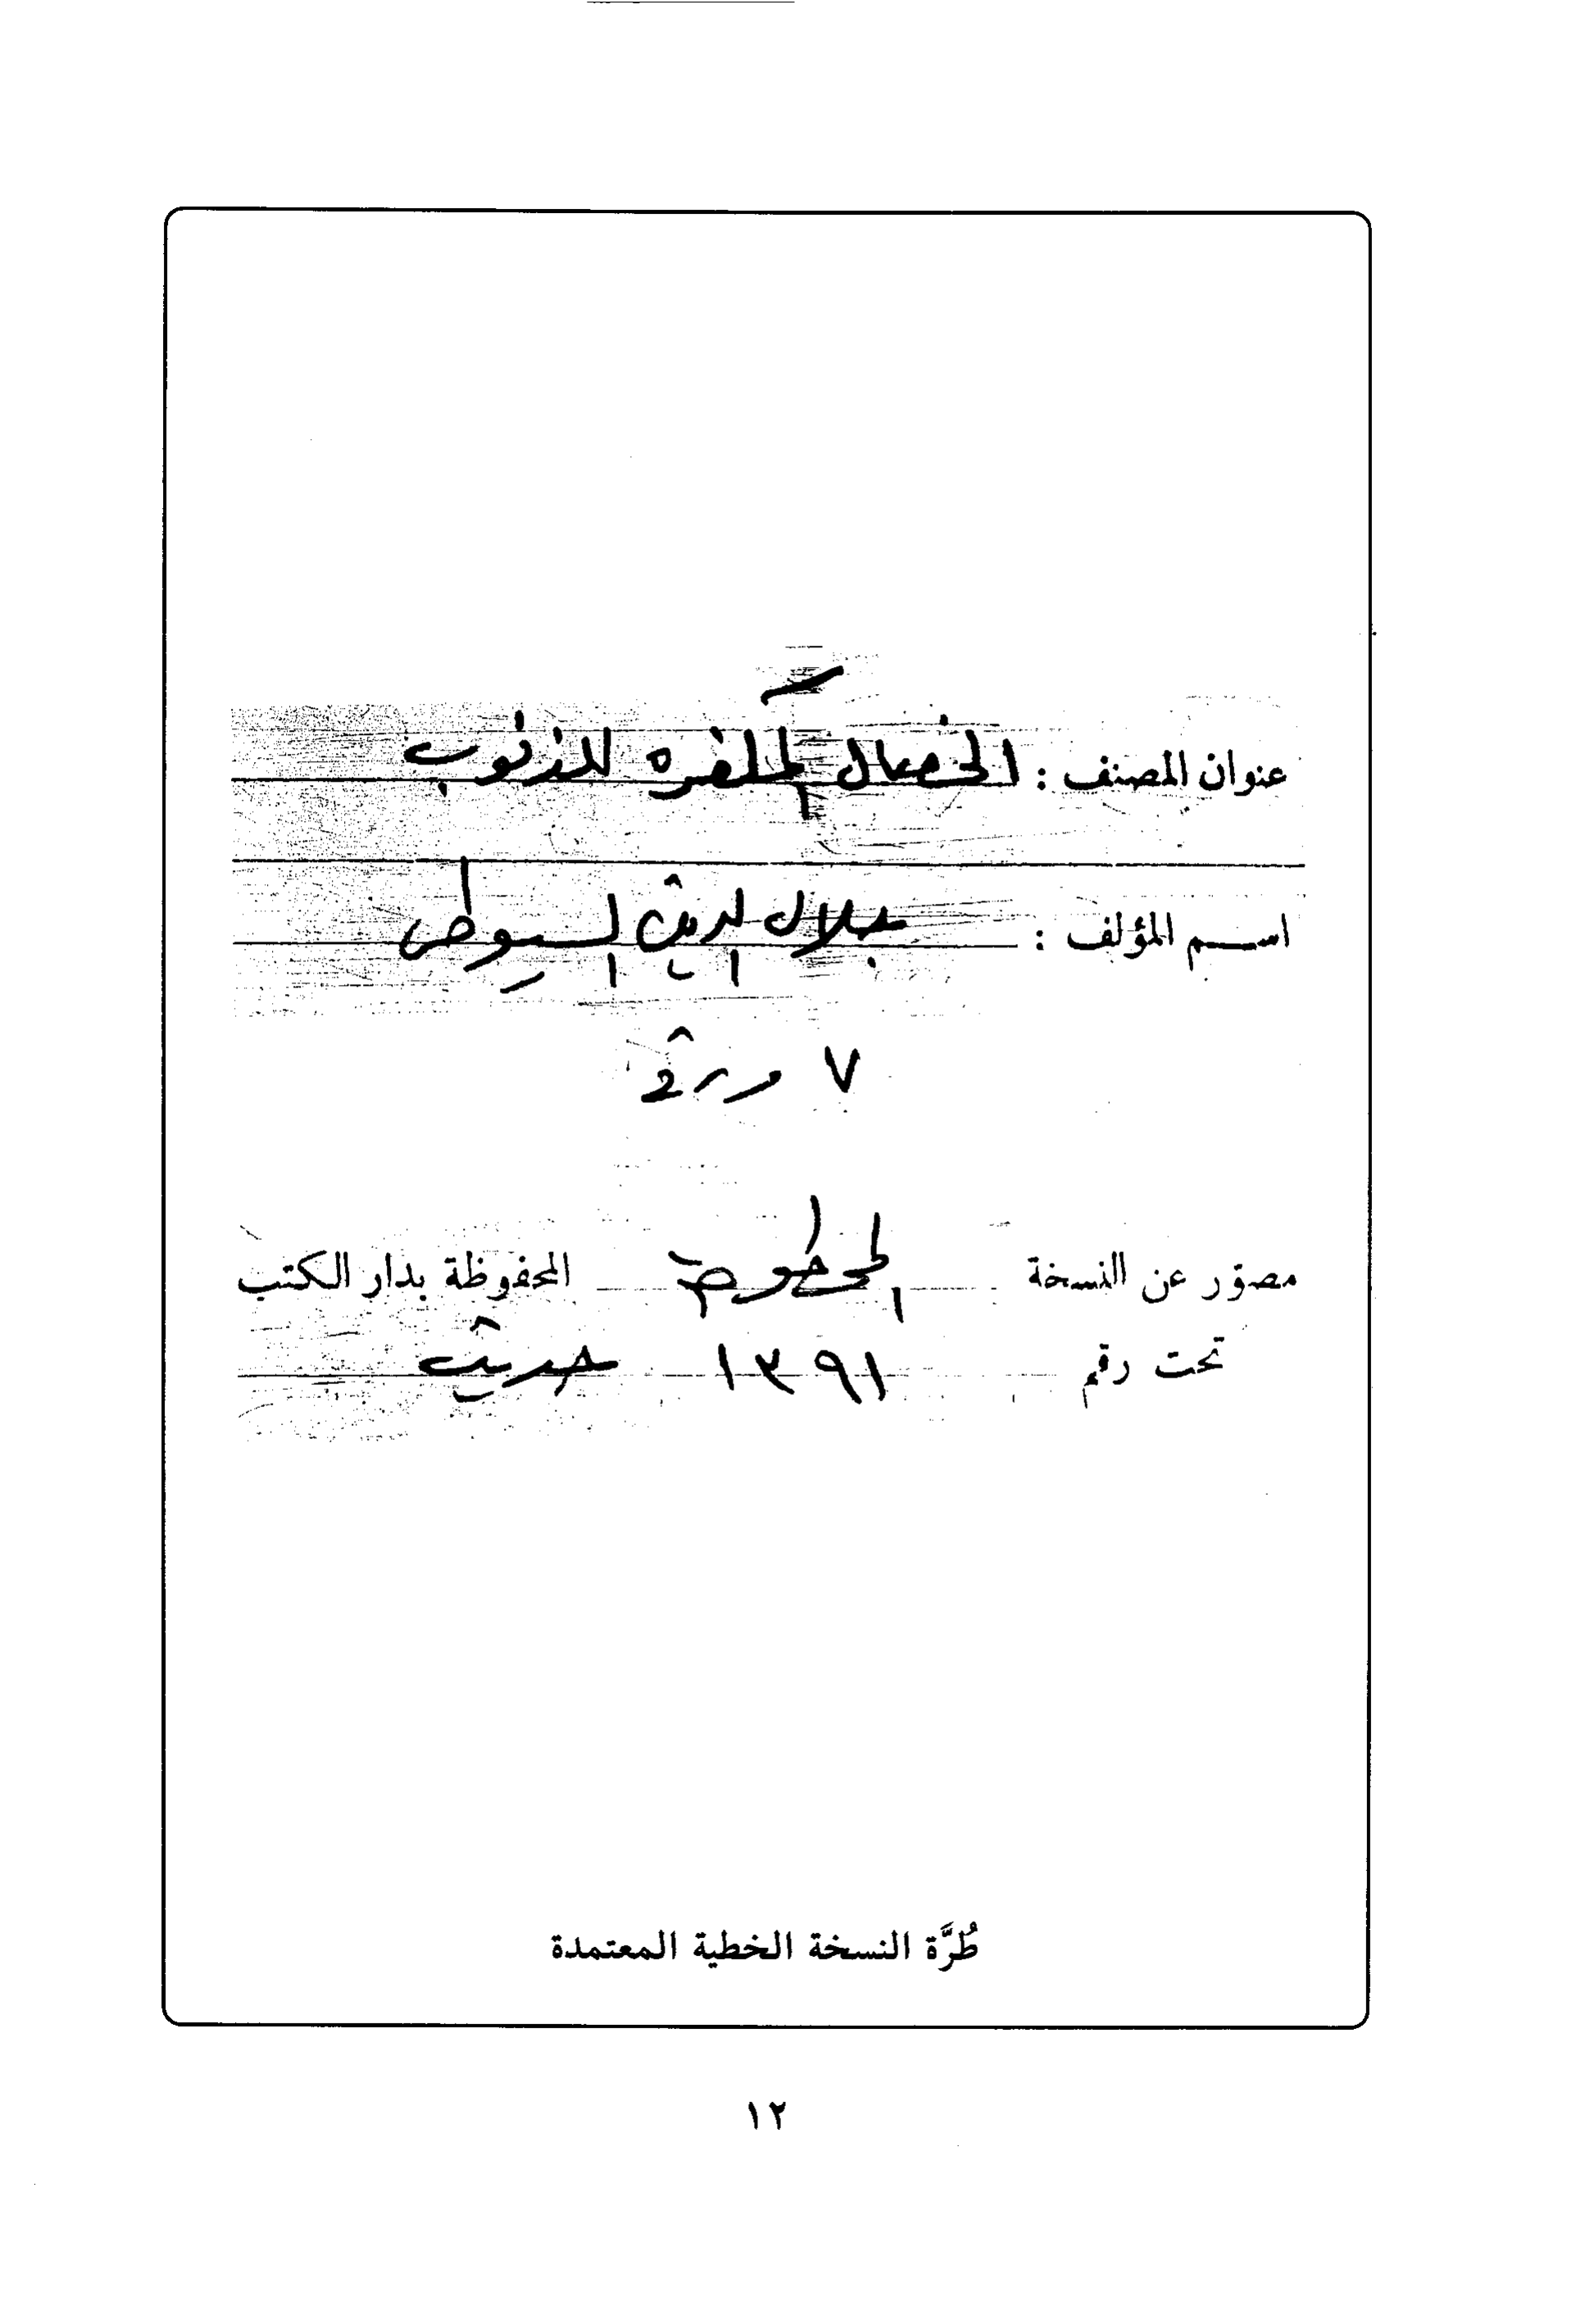 عنوان المصنف : الخصال المكفره للذنوب
اسم المؤلف : جلال الدين السيوطى
٧ ورقة
مصوّر عن النسخة المخطوطة المحفوظة بدار الكتب
تحت رقم ١٣٩١ حديث
طُرَّة النسخة الخطية المعتمدة
١٢